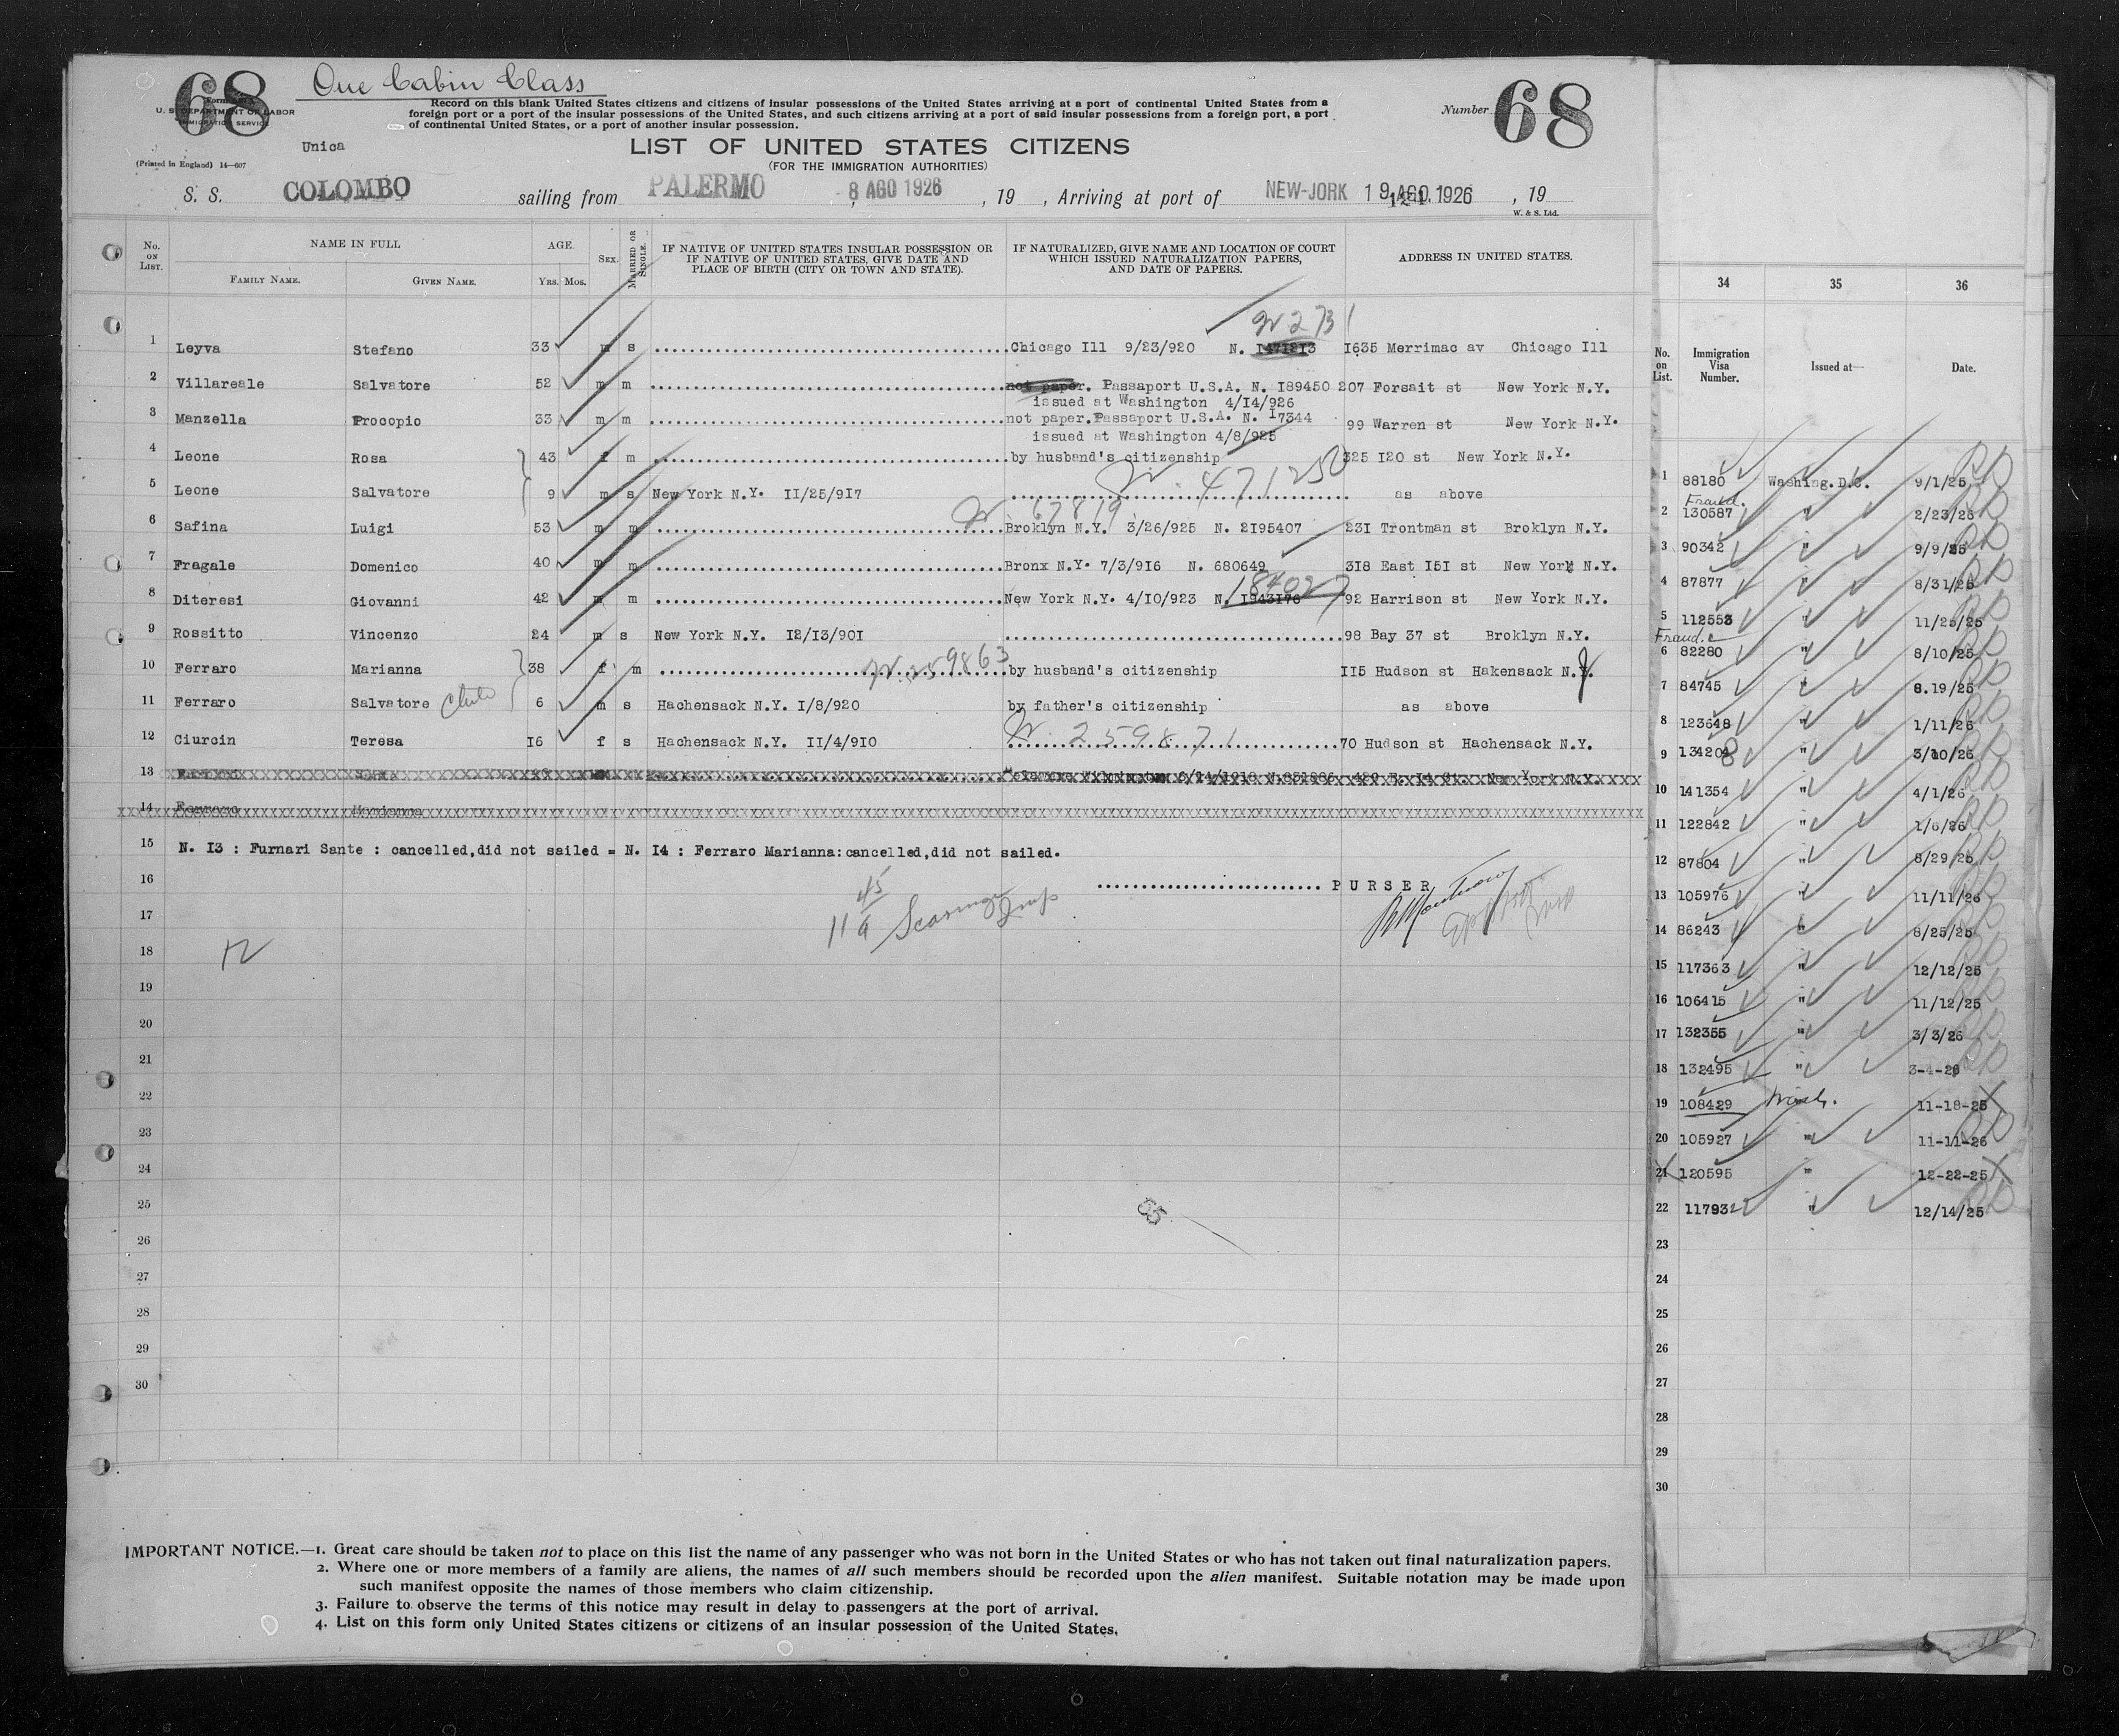 68 One Cabin Class
U. S. DEPARTMENT OF LABOR
IMMIGRATION SERVICE
(Printed in England) 14—607
Unica
Record on this blank United States citizens and citizens of insular possessions of the United States arriving at a port of continental United States from a
foreign port or a port of the insular possessions of the United States, and such citizens arriving at a port of said insular possessions from a foreign port, a port
of continental United States, or a port of another insular possession.
Number 68
LIST OF UNITED STATES CITIZENS
(FOR THE IMMIGRATION AUTHORITIES)
S. S. COLOMBO sailing from PALERMO, 8 AGO 1926, 19 , Arriving at port of NEW-JORK 19 AGO. 1926, 19
W. & S. Ltd.
No. ON LIST. NAME IN FULL AGE. SEX. MARRIED OR SINGLE. IF NATIVE OF UNITED STATES INSULAR POSSESSION OR IF NATIVE OF UNITED STATES, GIVE DATE AND PLACE OF BIRTH (CITY OR TOWN AND STATE). IF NATURALIZED, GIVE NAME AND LOCATION OF COURT WHICH ISSUED NATURALIZATION PAPERS, AND DATE OF PAPERS. ADDRESS IN UNITED STATES.
FAMILY NAME. GIVEN NAME. YRS. MOS.
2731
1 Leyva Stefano 33 m s Chicago Ill 9/23/920 N. 1635 Merrimac av Chicago Ill
2 Villareale Salvatore 52 m m not paper. Passaport U.S.A. N. I89450 207 Forsait st New York N.Y.
issued at Washington 4/I4/926
3 Manzella Procopio 33 m m not paper. Passaport U.S.A. N. I7344 99 Warren st New York N.Y.
issued at Washington 4/8/925
4 Leone Rosa 43 f m by husband's citizenship 325 I20 st New York N.Y.
471250
5 Leone Salvatore 9 m s New York N.Y. II/25/9I7 as above
67819
6 Safina Luigi 53 m m Broklyn N.Y. 3/26/925 N. 2I95407 23I Trontman st Broklyn N.Y.
7 Fragale Domenico 40 m m Bronx N.Y. 7/3/9I6 N. 680649 3I8 East I5I st New York N.Y.
184027
8 Diteresi Giovanni 42 m m New York N.Y. 4/I0/923 N. I943I76 92 Harrison st New York N.Y.
9 Rossitto Vincenzo 24 m s New York N.Y. I2/I3/90I 98 Bay 37 st Broklyn N.Y.
259863
10 Ferraro Marianna 38 f m by husband's citizenship II5 Hudson st Hakensack N.
11 Ferraro Salvatore 6 m s Hachensack N.Y. I/8/920 by father's citizenship as above
259871
12 Ciurcin Teresa I6 f s Hachensack N.Y. II/4/9I0 70 Hudson st Hachensack N.Y.
13
14 Ferraro Marianna
15 N. I3 : Furnari Sante : cancelled,did not sailed = N. I4 : Ferraro Marianna:cancelled,did not sailed.
16 PURSER
17
18
19
20
21
22
23
24
25
65
26
27
28
29
30
IMPORTANT NOTICE.—1. Great care should be taken not to place on this list the name of any passenger who was not born in the United States or who has not taken out final naturalization papers.
2. Where one or more members of a family are aliens, the names of all such members should be recorded upon the alien manifest. Suitable notation may be made upon
such manifest opposite the names of those members who claim citizenship.
3. Failure to observe the terms of this notice may result in delay to passengers at the port of arrival.
4. List on this form only United States citizens or citizens of an insular possession of the United States.
34 35 36
No. on List. Immigration Visa Number. Issued at— Date.
1 88180 Washing.D.C. 9/1/25
Fraud.
2 130587 " 2/23/26
3 90342 " 9/9/25
4 87877 " 8/31/25
5 112553 " 11/25/25
Fraud.
6 82280 " 8/10/25
7 84745 " 8.19/25
8 123648 " 1/11/26
9 134208 " 3/10/26
10 141354 " 4/1/26
11 122842 " 1/6/26
12 87804 " 8/29/25
13 105976 " 11/11/26
14 86243 " 8/25/25
15 117363 " 12/12/25
16 106415 " 11/12/25
17 132355 " 3/3/26
18 132495 " 3-4-26
19 108429 Wash. 11-18-25
20 105927 " 11-11-26
21 120595 " 12-22-25
22 117932 " 12/14/25
23
24
25
26
27
28
29
30